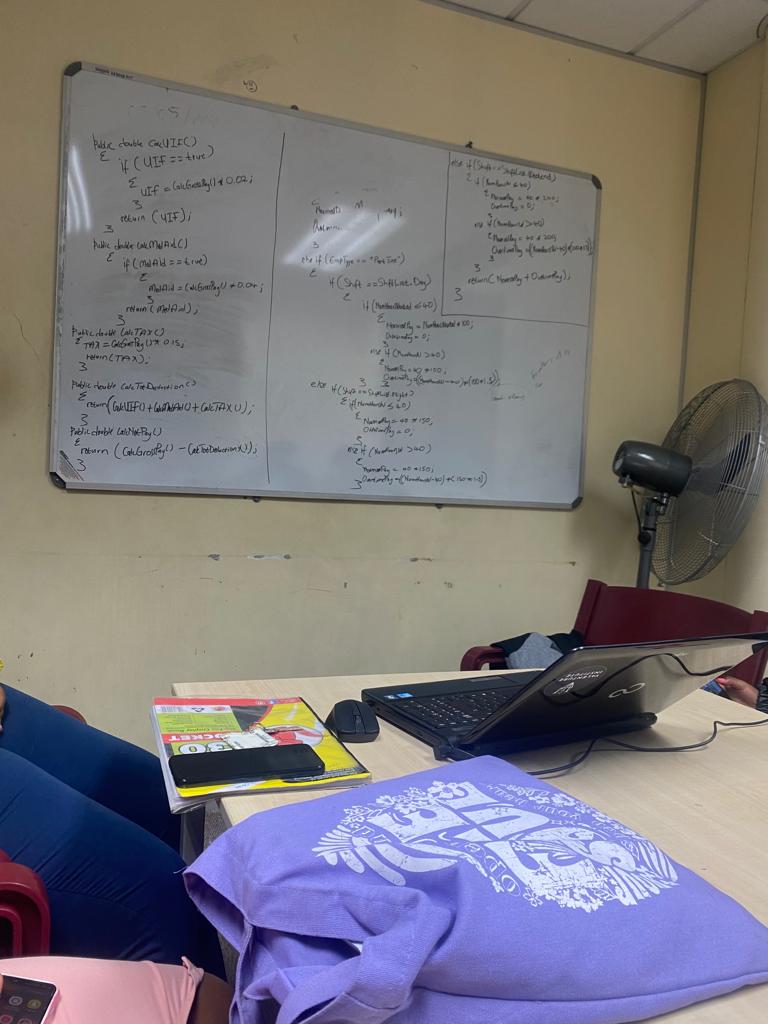 Public double CalcUIF()
{
if (UIF == true)
{ UIF = CalcGrossPay() * 0.02;
}
return (UIF);
}
Public double CalcMedAid()
{
if (MedAid == true)
{
MedAid = CalcGrossPay() * 0.04;
}
return (MedAid);
}
Public double CalcTAX()
{ TAX = CalcGrossPay() * 0.15;
return (TAX);
}
Public double CalcTotDeduction()
{
return (CalcUIF() + CalcMedAid() + CalcTAX());
}
Public double CalcNetPay()
{
return (CalcGrossPay() - CalcTotDeduction());
}
}
else if (EmpType == "Part Time")
{
if (Shift == ShiftList.Day)
{
if (NumHoursWorked ≤ 40)
{
NormalPay = NumHoursWorked * 100;
OvertimePay = 0;
}
else if (NumHoursW > 40)
{
NormalPay = 40 * 100;
}
else if (Shift == ShiftList.Night)
{ if (NumHoursW ≤ 40)
{
NormalPay = 40 * 150;
OvertimePay = 0;
}
else if (NumHoursW > 40)
{
NormalPay = 40 * 150;
} OvertimePay = ((NumHoursW - 40) * (150 * 1.5))
else if (Shift == ShiftList.Weekend)
{ if (NumHoursW ≤ 40)
{
NormalPay = 40 * 200;
OvertimePay = 0;
}
else if (NumHoursW > 40)
{
NormalPay = 40 * 200;
}
}
return (NormalPay + OvertimePay);
}
POCKET
30
VALENTURE
INSTITUTE